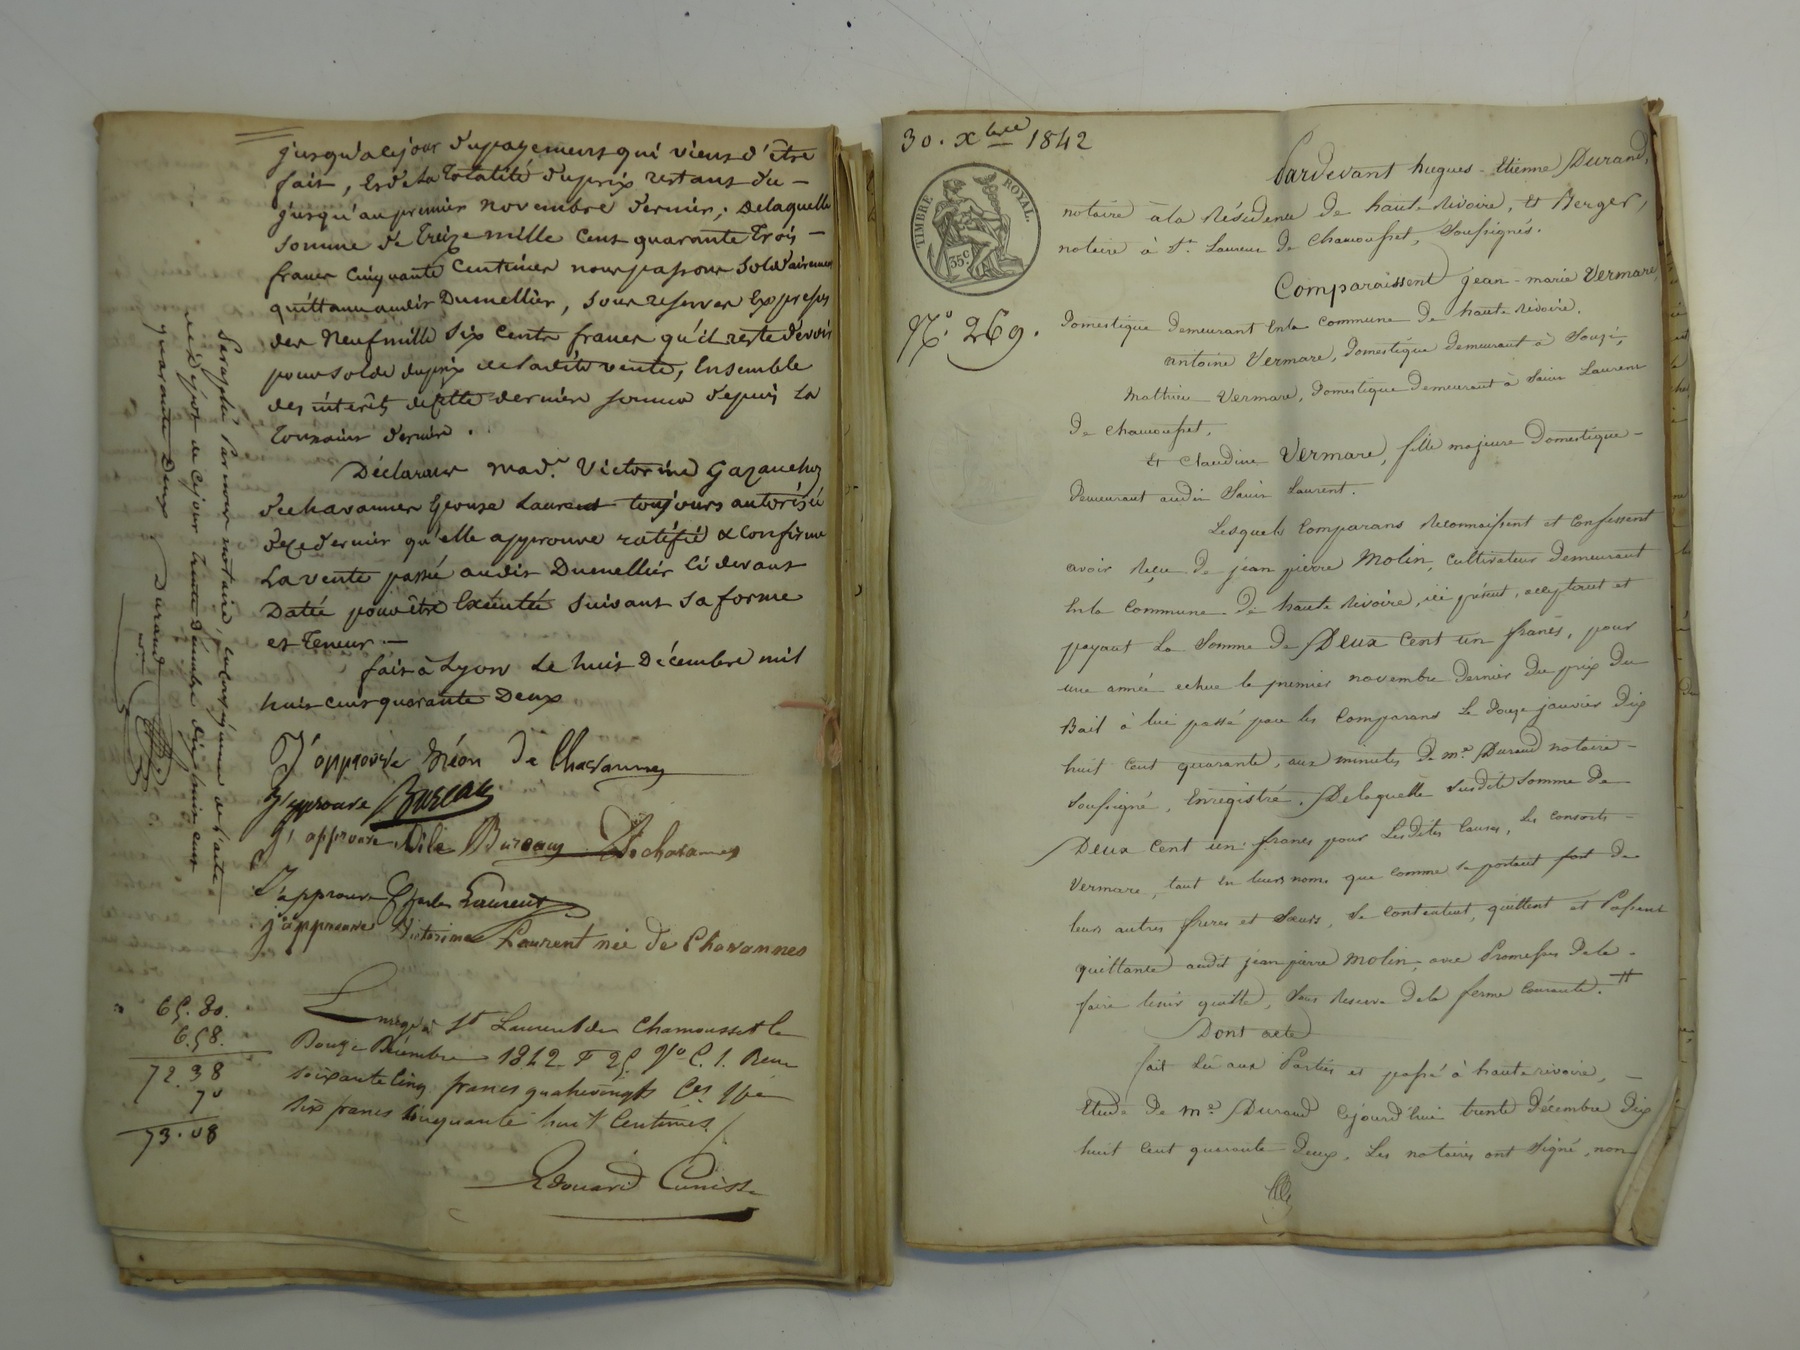 jusqu'a cejour du payement qui vient d'être
fait, et de la totalité du prix restant du –
jusqu'au premier novembre dernier; De laquelle
somme de treize mille cent quarante trois –
francs cinquante centimes nous passons solidairement
quittance audit Dumellier, sous reserves expresses
des neuf mille six cents francs qu'il reste devoir
pour solde du prix de ladite vente, Ensemble
des intérêts de cette dernière somme depuis la
toussaint dernier.
Déclarant mad.e Victorine Gazanchoz
dechavannes épouse Laurent toujours autorisée
de ce dernier qu'elle approuve ratifie & confirme
La vente passé audit Dumellier ci devant
Datée pour être Exécutée suivant sa forme
et teneur –
fait à Lyon Le huit Décembre mil
huit cent quarante Deux
J'approuve Méon De Chavannes
J'approuve Bureau
J'approuve Bureau Dechavannes
J'approuve Charles Laurent
j'approuve Victorine Laurent née de Chavannes
Enreg. à St Laurent de Chamousset le
Douze Décembre 1842 F 25 Vo C. 1. Recu
soixante cinq francs quatrevingts Ces
six francs cinquante huit Centimes
Edouard Cunisse
65. 80.
6. 58.
72. 38
70
73. 08
Ne varietur Par nous notaire, en conséquence de l'acte
reçu de cejour trente décembre dix huit cent
quarante Deux
Durand
nre
30. Xbre 1842
TIMBRE ROYAL.
35c
No. 269.
Pardevant hugues - Etienne Durand,
notaire à la Résidence de haute Rivoire, Et Berger,
notaire à St. Laurent de Chamousset, Soussignés.
Comparaissent jean - marie Vermare,
Domestique demeurant En la commune de haute Rivoire.
antoine Vermare, Domestique demeurant à Souzi,
Mathieu Vermare, Domestique demeurant à Saint Laurent
De chamousset,
Et Claudine Vermare, fille majeure Domestique –
Demeurant audit Saint Laurent.
Lesquels Comparans Reconnaissent et Confessent
avoir Reçu de jean pierre Molin, Cultivateur demeurant
En la Commune de haute Rivoire, ici présent, acceptant et
payant La Somme de Deux Cent un francs, pour
une année echue le premier novembre dernier du prix du
Bail à lui passé par les Comparans Le douze janvier Dix
huit Cent quarante, aux minutes de me. Durand notaire –
Soussigné, Enregistré. De laquelle Susdite Somme de
Deux Cent un francs pour Les dites Causes, Les consorts –
Vermare, tant en leurs noms que comme se portant fort de
leurs autres freres et Sœurs, Se Contentent, quittent et Passent
quittance audit jean pierre Molin, avec Promesses De le –
faire tenir quitte, Sous Reserve de la ferme Courante. #
Dont acte
fait Lû aux Parties et passé à haute rivoire, –
Etude De me. Durand Cejourd'hui trente Décembre Dix
huit Cent quarante Deux. Les notaires ont Signé, non